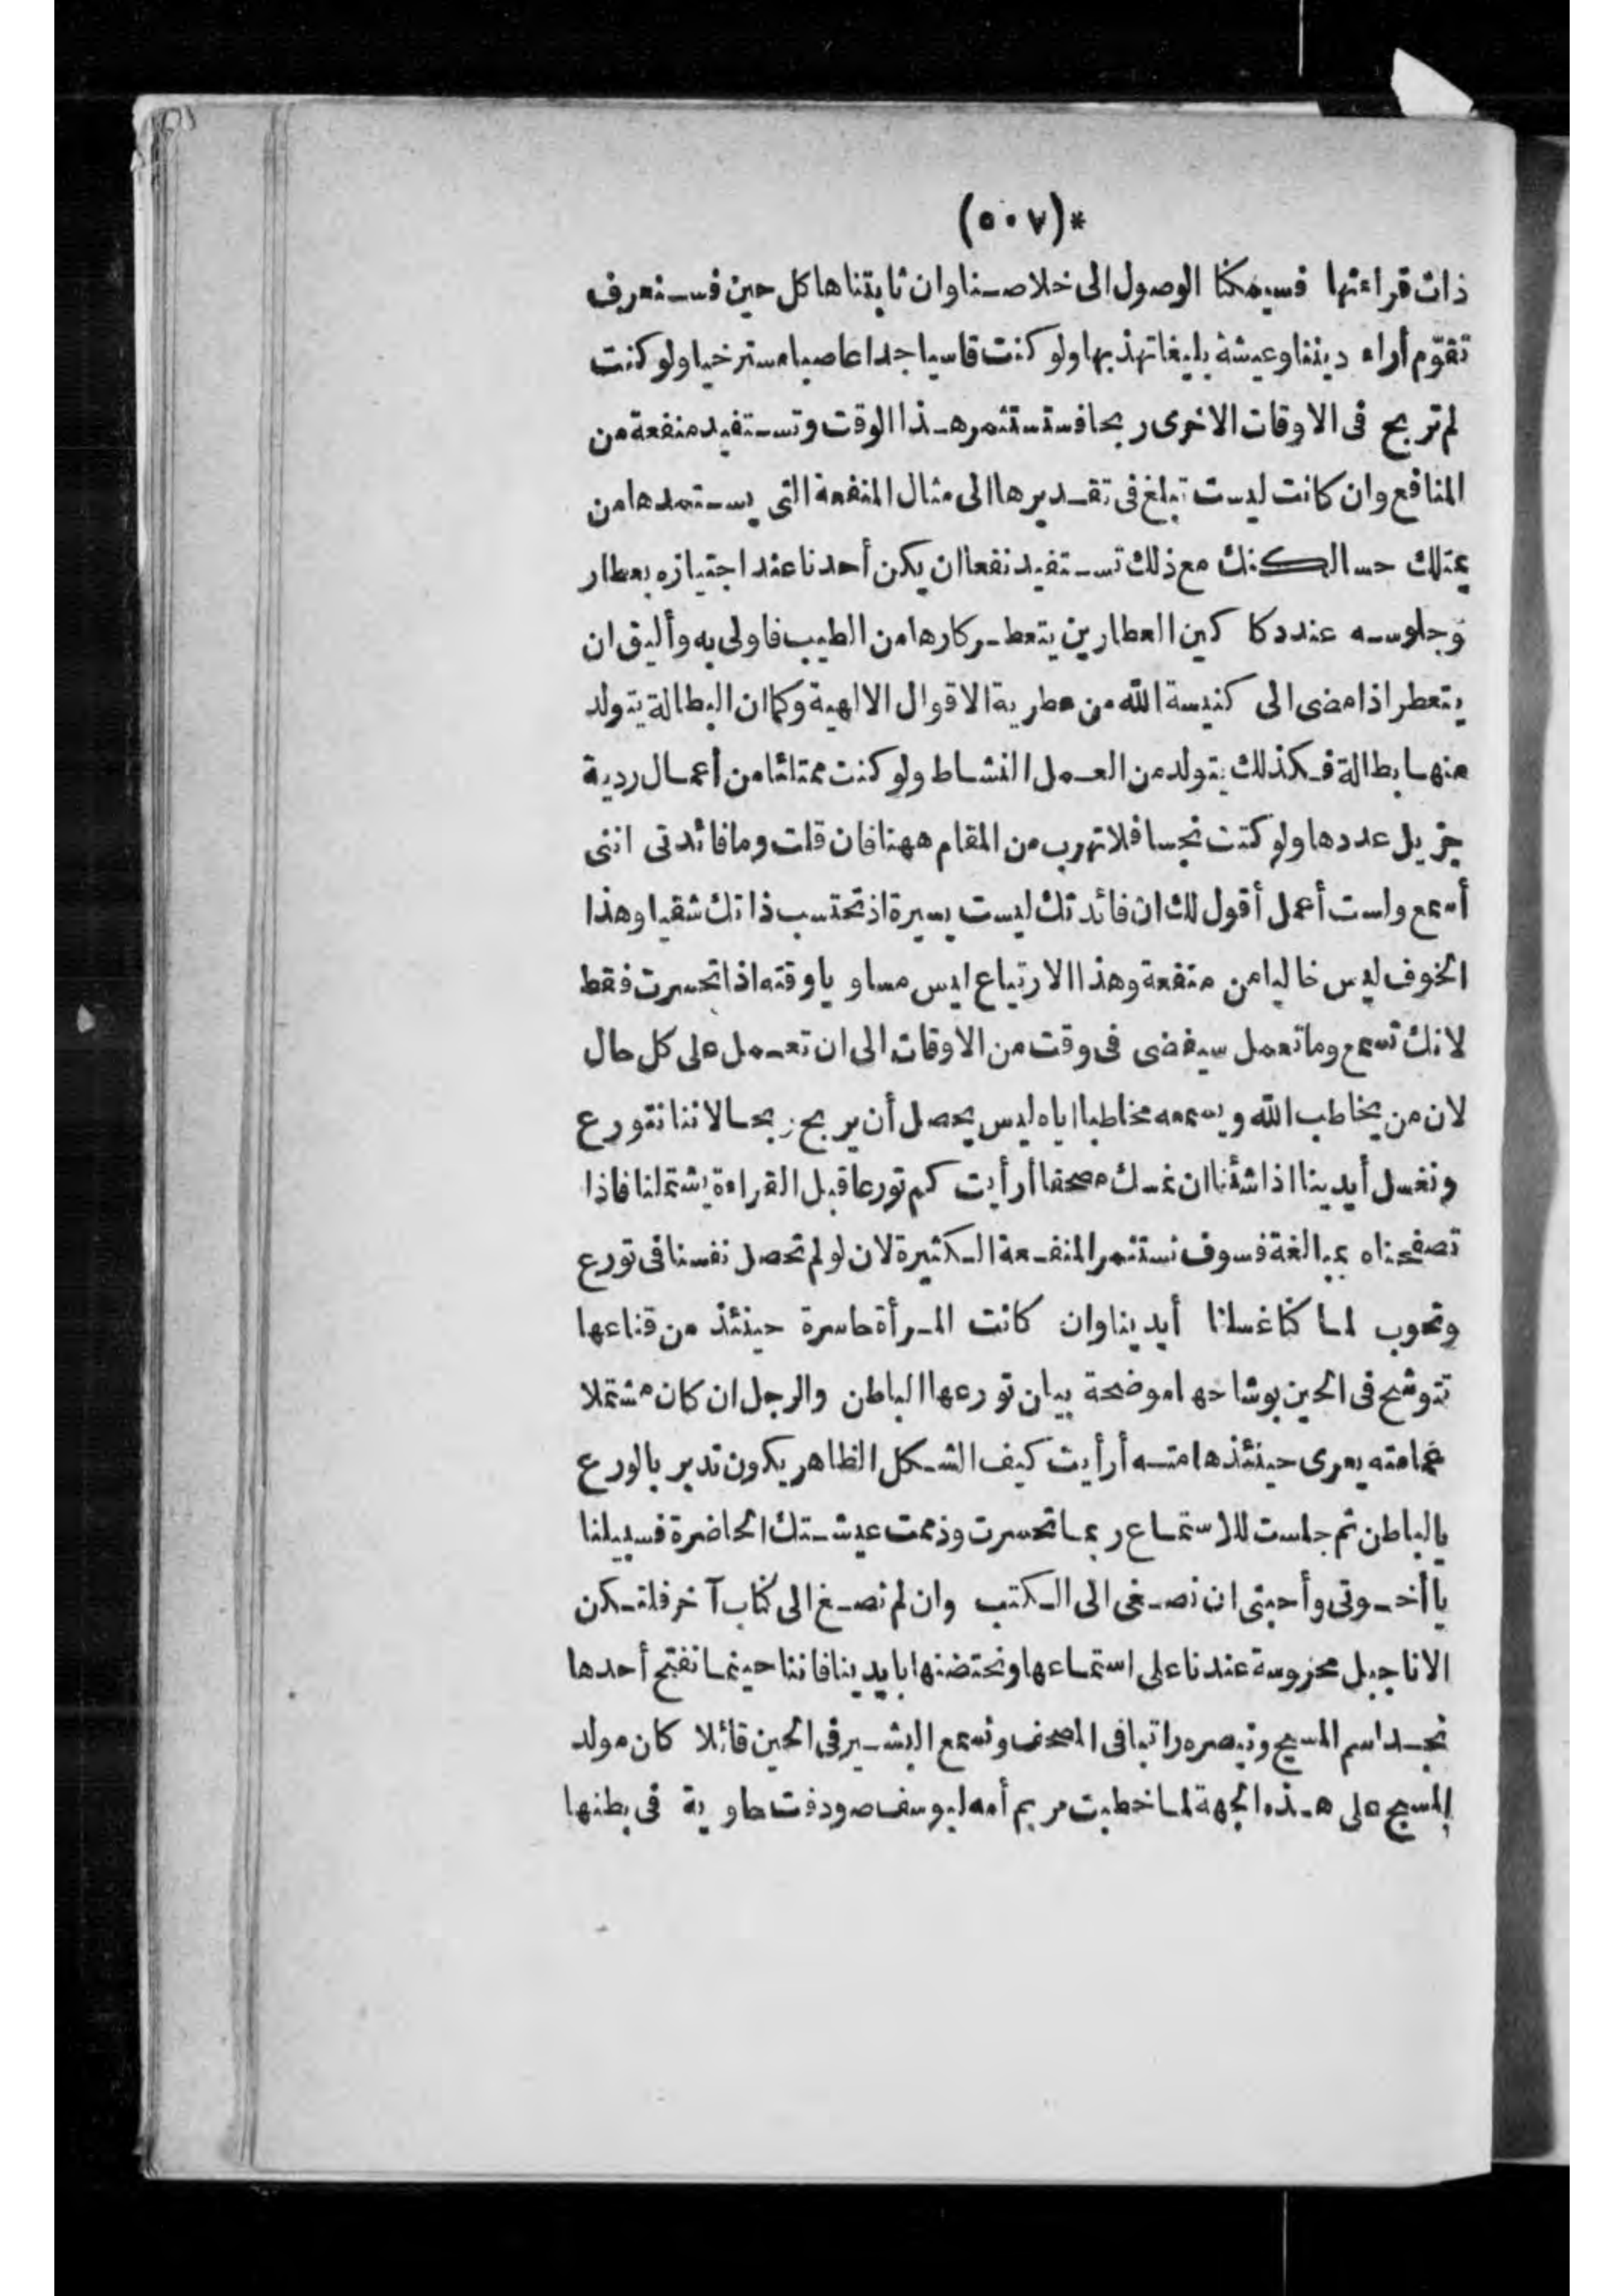 *(٥٠٧)
ذات قراءتها فسيمكنا الوصول الى خلاصنا وان ثابتناها كل حين فسنعرف
تقوّم أراء ديننا وعيشة بليغا تهذبها ولو كنت قاسيا جدا عاصيا مسترخيا ولو كنت
لم تربح فى الاوقات الاخرى ربحا فستستثمر هذا الوقت وتستفيد منفعة من
المنافع وان كانت ليست تبلغ فى تقديرها الى مثال المنفعة التى يستمدها من
يمتلك حسا لكنك مع ذلك تستفيد نفعا ان يكن أحدنا عند اجتيازه بعطار
وجلوسه عند دكاكين العطارين يتعطر كارها من الطيب فاولى به وأليق ان
يتعطر اذا مضى الى كنيسة الله من عطرية الاقوال الالهية وكما ان البطالة يتولد
منها بطالة فكذلك يتولد من العمل النشاط ولو كنت ممتلئا من أعمال ردية
جزيل عددها ولو كنت نجسا فلا تهرب من المقام ههنا فان قلت وما فائدتى اننى
أسمع ولست أعمل أقول لك ان فائدتك ليست يسيرة اذ تحتسب ذاتك شقيا وهذا
الخوف ليس خاليا من منفعة وهذا الارتياع ليس مساويا وقته اذا تحسرت فقط
لانك تسمع وما تعمل سيفضى فى وقت من الاوقات الى ان تعمل على كل حال
لان من يخاطب الله ويسمعه مخاطبا اياه ليس يحصل أن يربح ربحا لاننا نتورع
ونغسل أيدينا اذا شئنا ان نمسك مصحفا أرأيت كم تورعا قبل القراءة يشتملنا فاذا
تصفحناه بمبالغة فسوف نستثمر المنفعة الكثيرة لان لو لم تحصل نفسنا فى تورع
وتحوب لما كنا غسلنا أيدينا وان كانت المرأة حاسرة حينئذ من قناعها
تتوشح فى الحين بوشاحها موضحة بيان تورعها الباطن والرجل ان كان مشتملا
عمامته يعرى حينئذ هامته أرأيت كيف الشكل الظاهر يكون تدبر بالورع
بالباطن ثم جلست للاستماع ربما تحسرت وذممت عيشتك الحاضرة فسبيلنا
يا أخوتى وأحبتى ان نصغى الى الكتب وان لم نصغ الى كتاب آخر فلتكن
الاناجيل محروسة عندنا على استماعها ونحتضنها بايدينا فاننا حينما نفتح أحدها
نجد اسم المسيح ونبصره راتبا فى المصحف ونسمع البشير فى الحين قائلا كان مولد
المسيح على هذه الجهة لما خطبت مريم أمه ليوسف صودفت حاوية فى بطنها